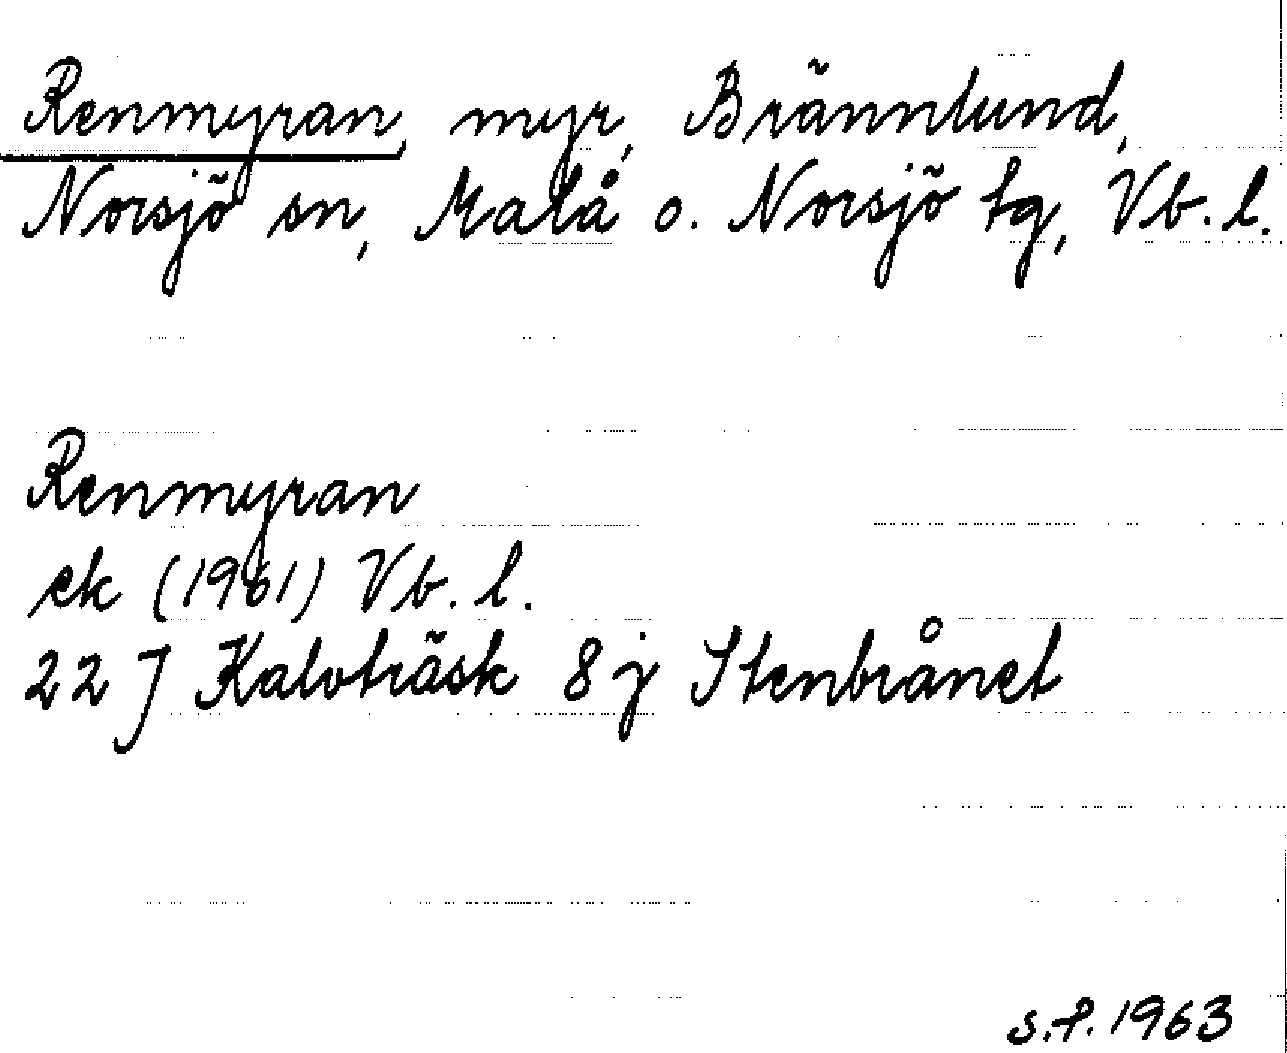 Renmyran, myr, Brännlund,
Norsjö sn, Malå o. Norsjö tg, Vb. l.
Renmyran
ek (1961) Vb. l.
22 J Kalvträsk 8 j Stenbrånet
s.f. 1963